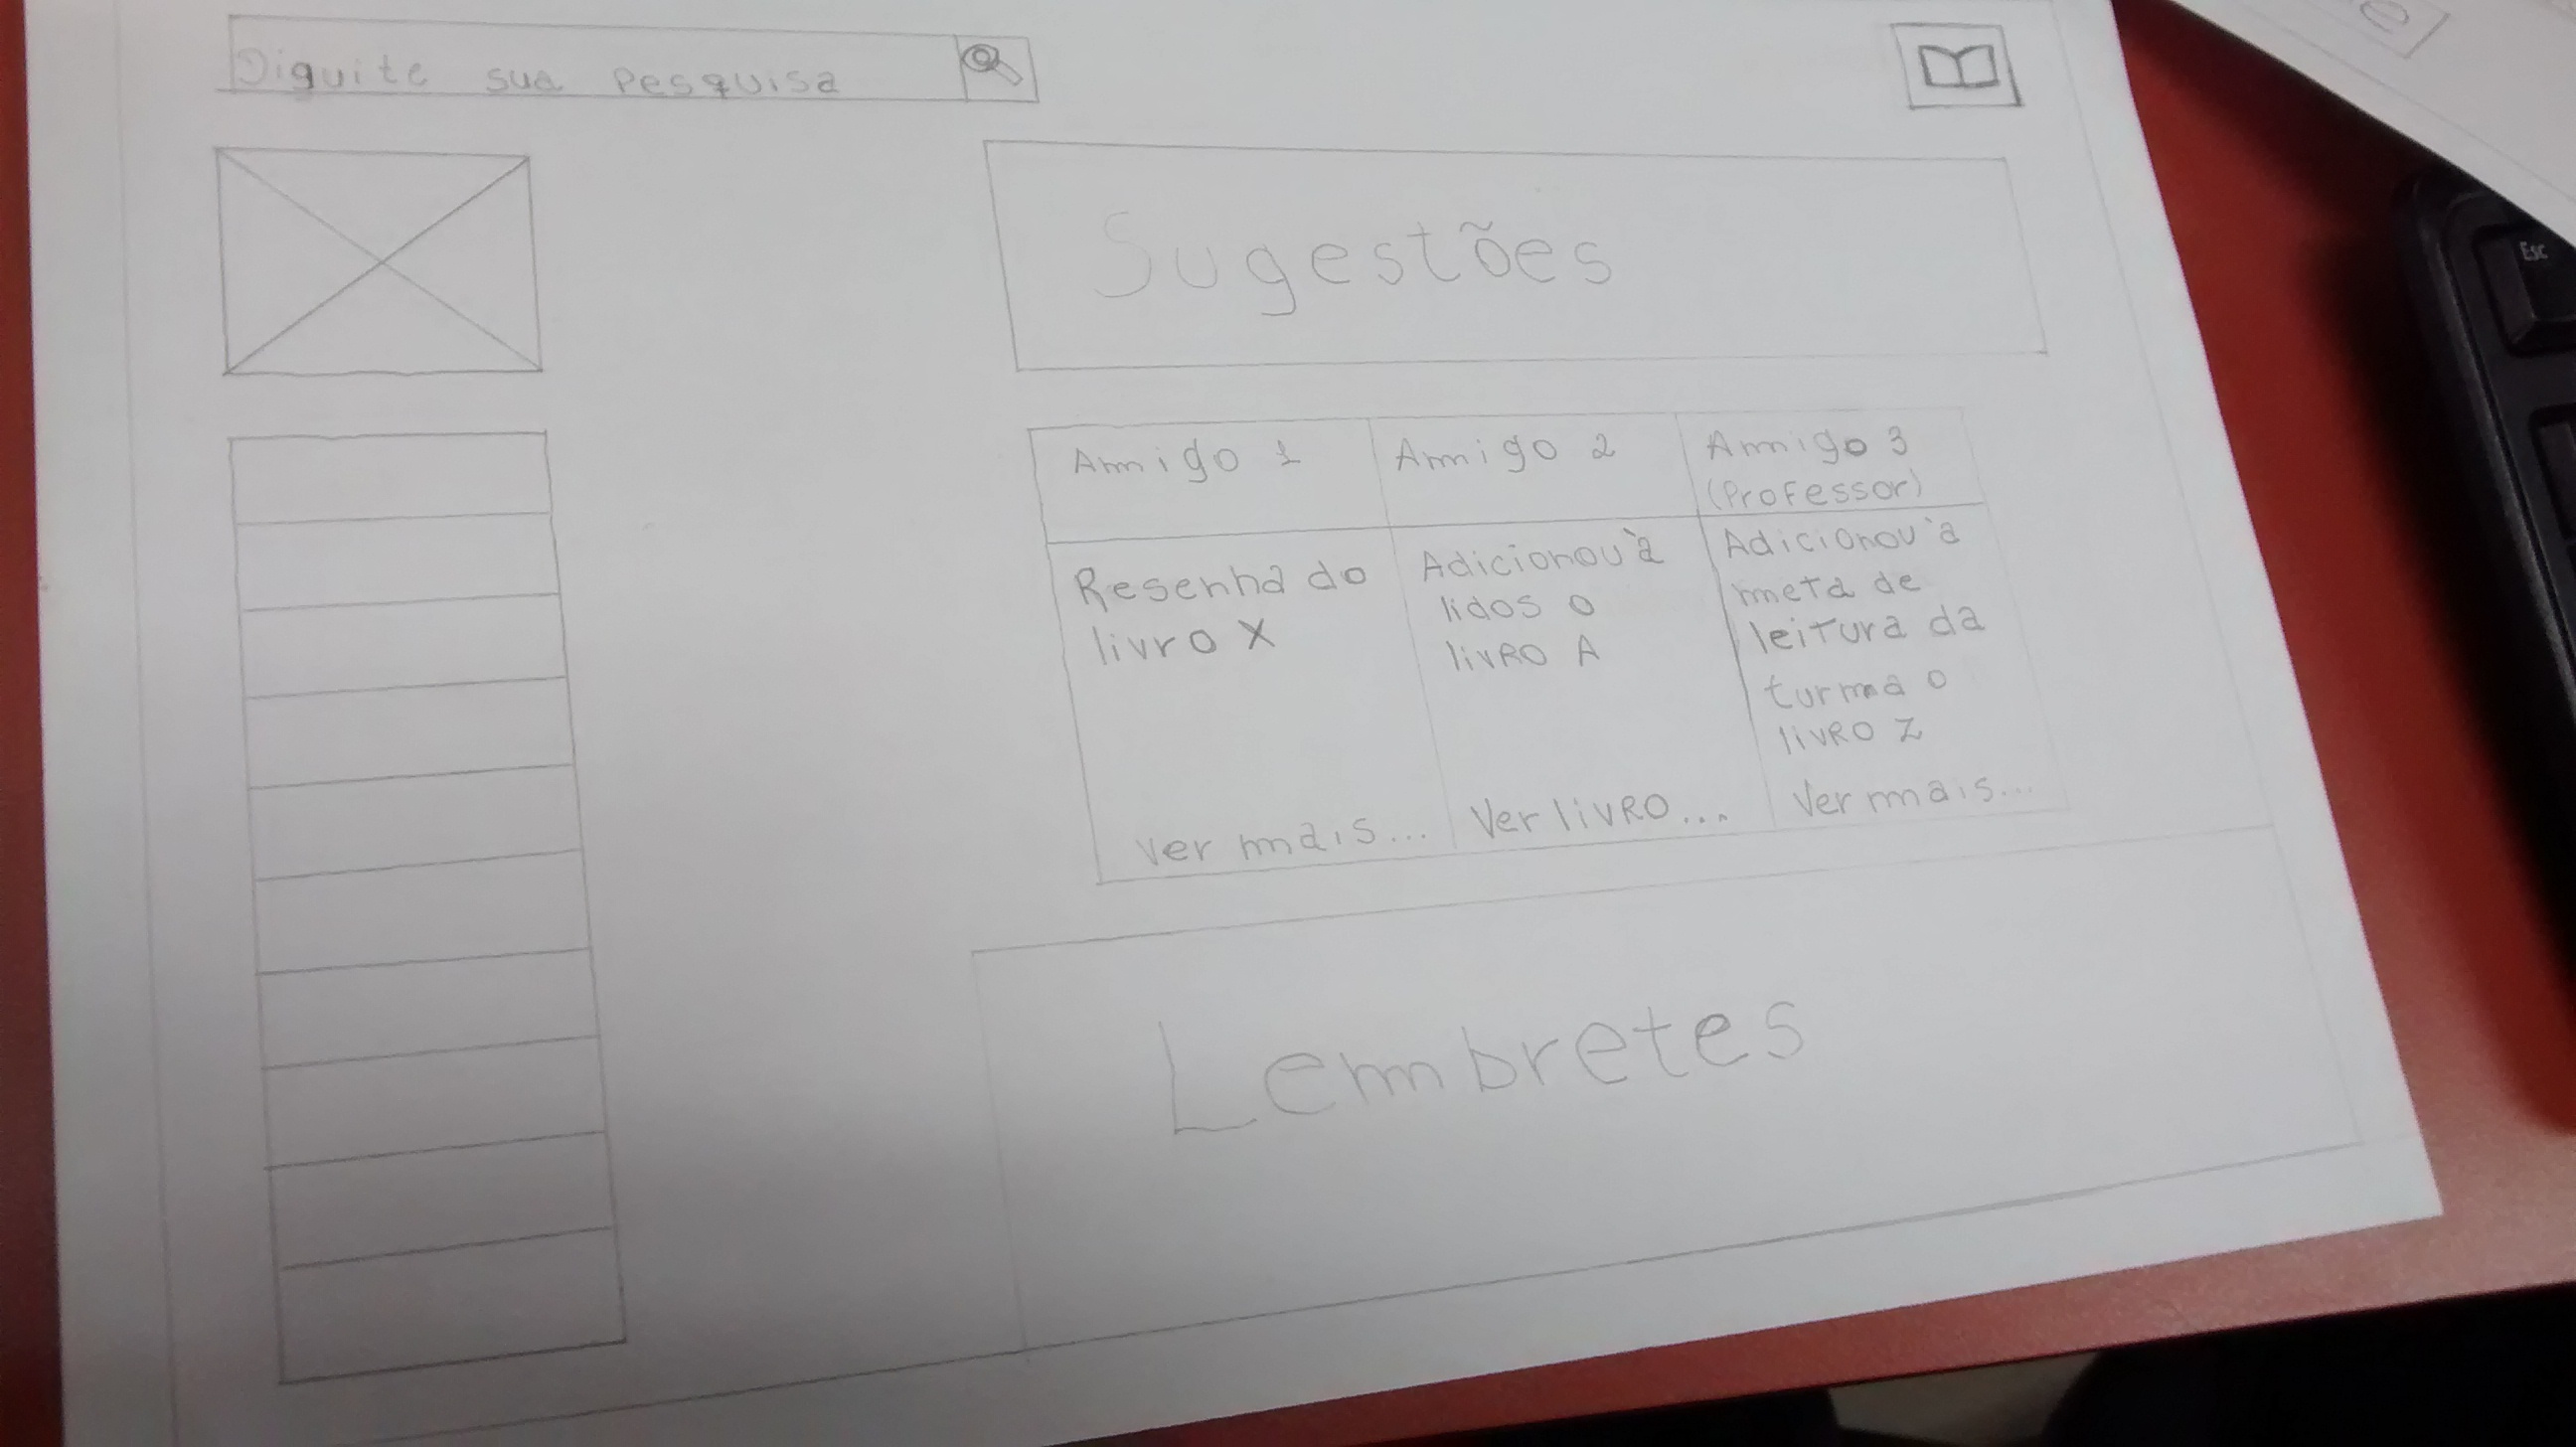 Diguite sua pesquisa
Sugestões
Amigo 1
Amigo 2
Amigo 3
(Professor)
Resenha do
livro X
ver mais...
Adicionou à
lidos o
livRO A
Ver livRO...
Adicionou à
meta de
leitura da
turma o
livRO Z
Ver mais...
Lembretes
Esc